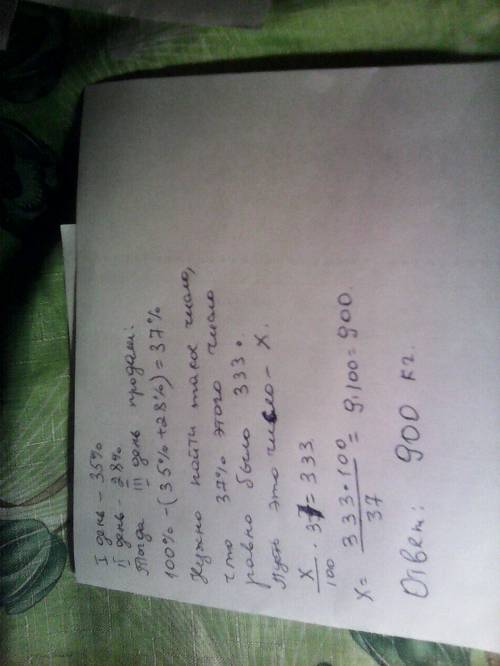 I день - 35%
II день - 28%
Тогда III день продали:
100% - (35% + 28%) = 37%
Нужно найти такое число,
что 37% этого число
равно было 333.
Пусть это число - x.
x/100 · 37 = 333
x = 333·100/37 = 9·100 = 900.
Ответ: 900 кг.